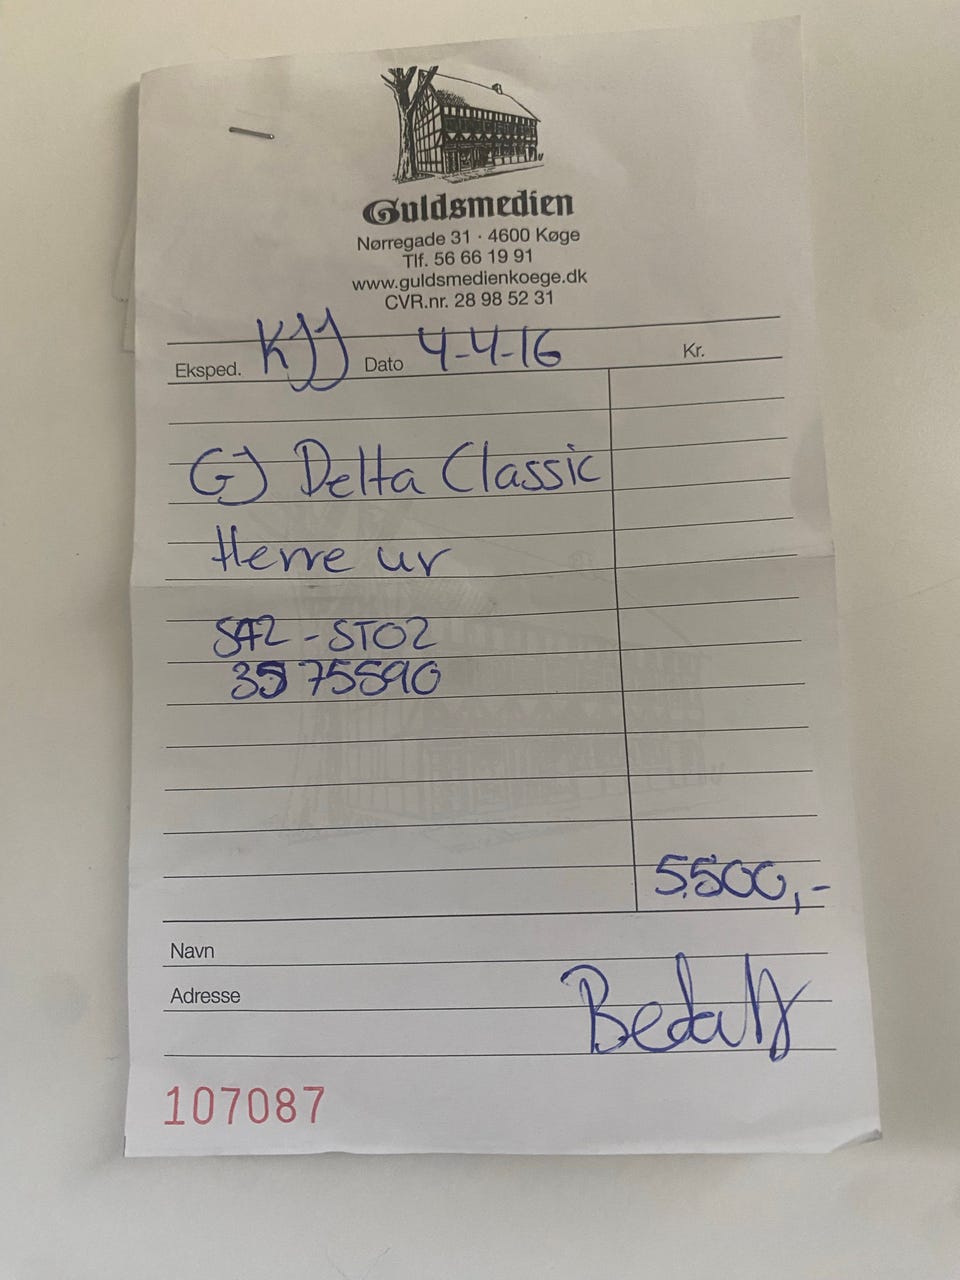 Guldsmedien
Nørregade 31 · 4600 Køge
Tlf. 56 66 19 91
www.guldsmedienkoege.dk
CVR.nr. 28 98 52 31
Eksped. KJJ Dato 4-4-16 Kr.
GJ Delta Classic
Herre ur
542-ST02
3575590
5.500,-
Navn
Adresse
Betalt
107087